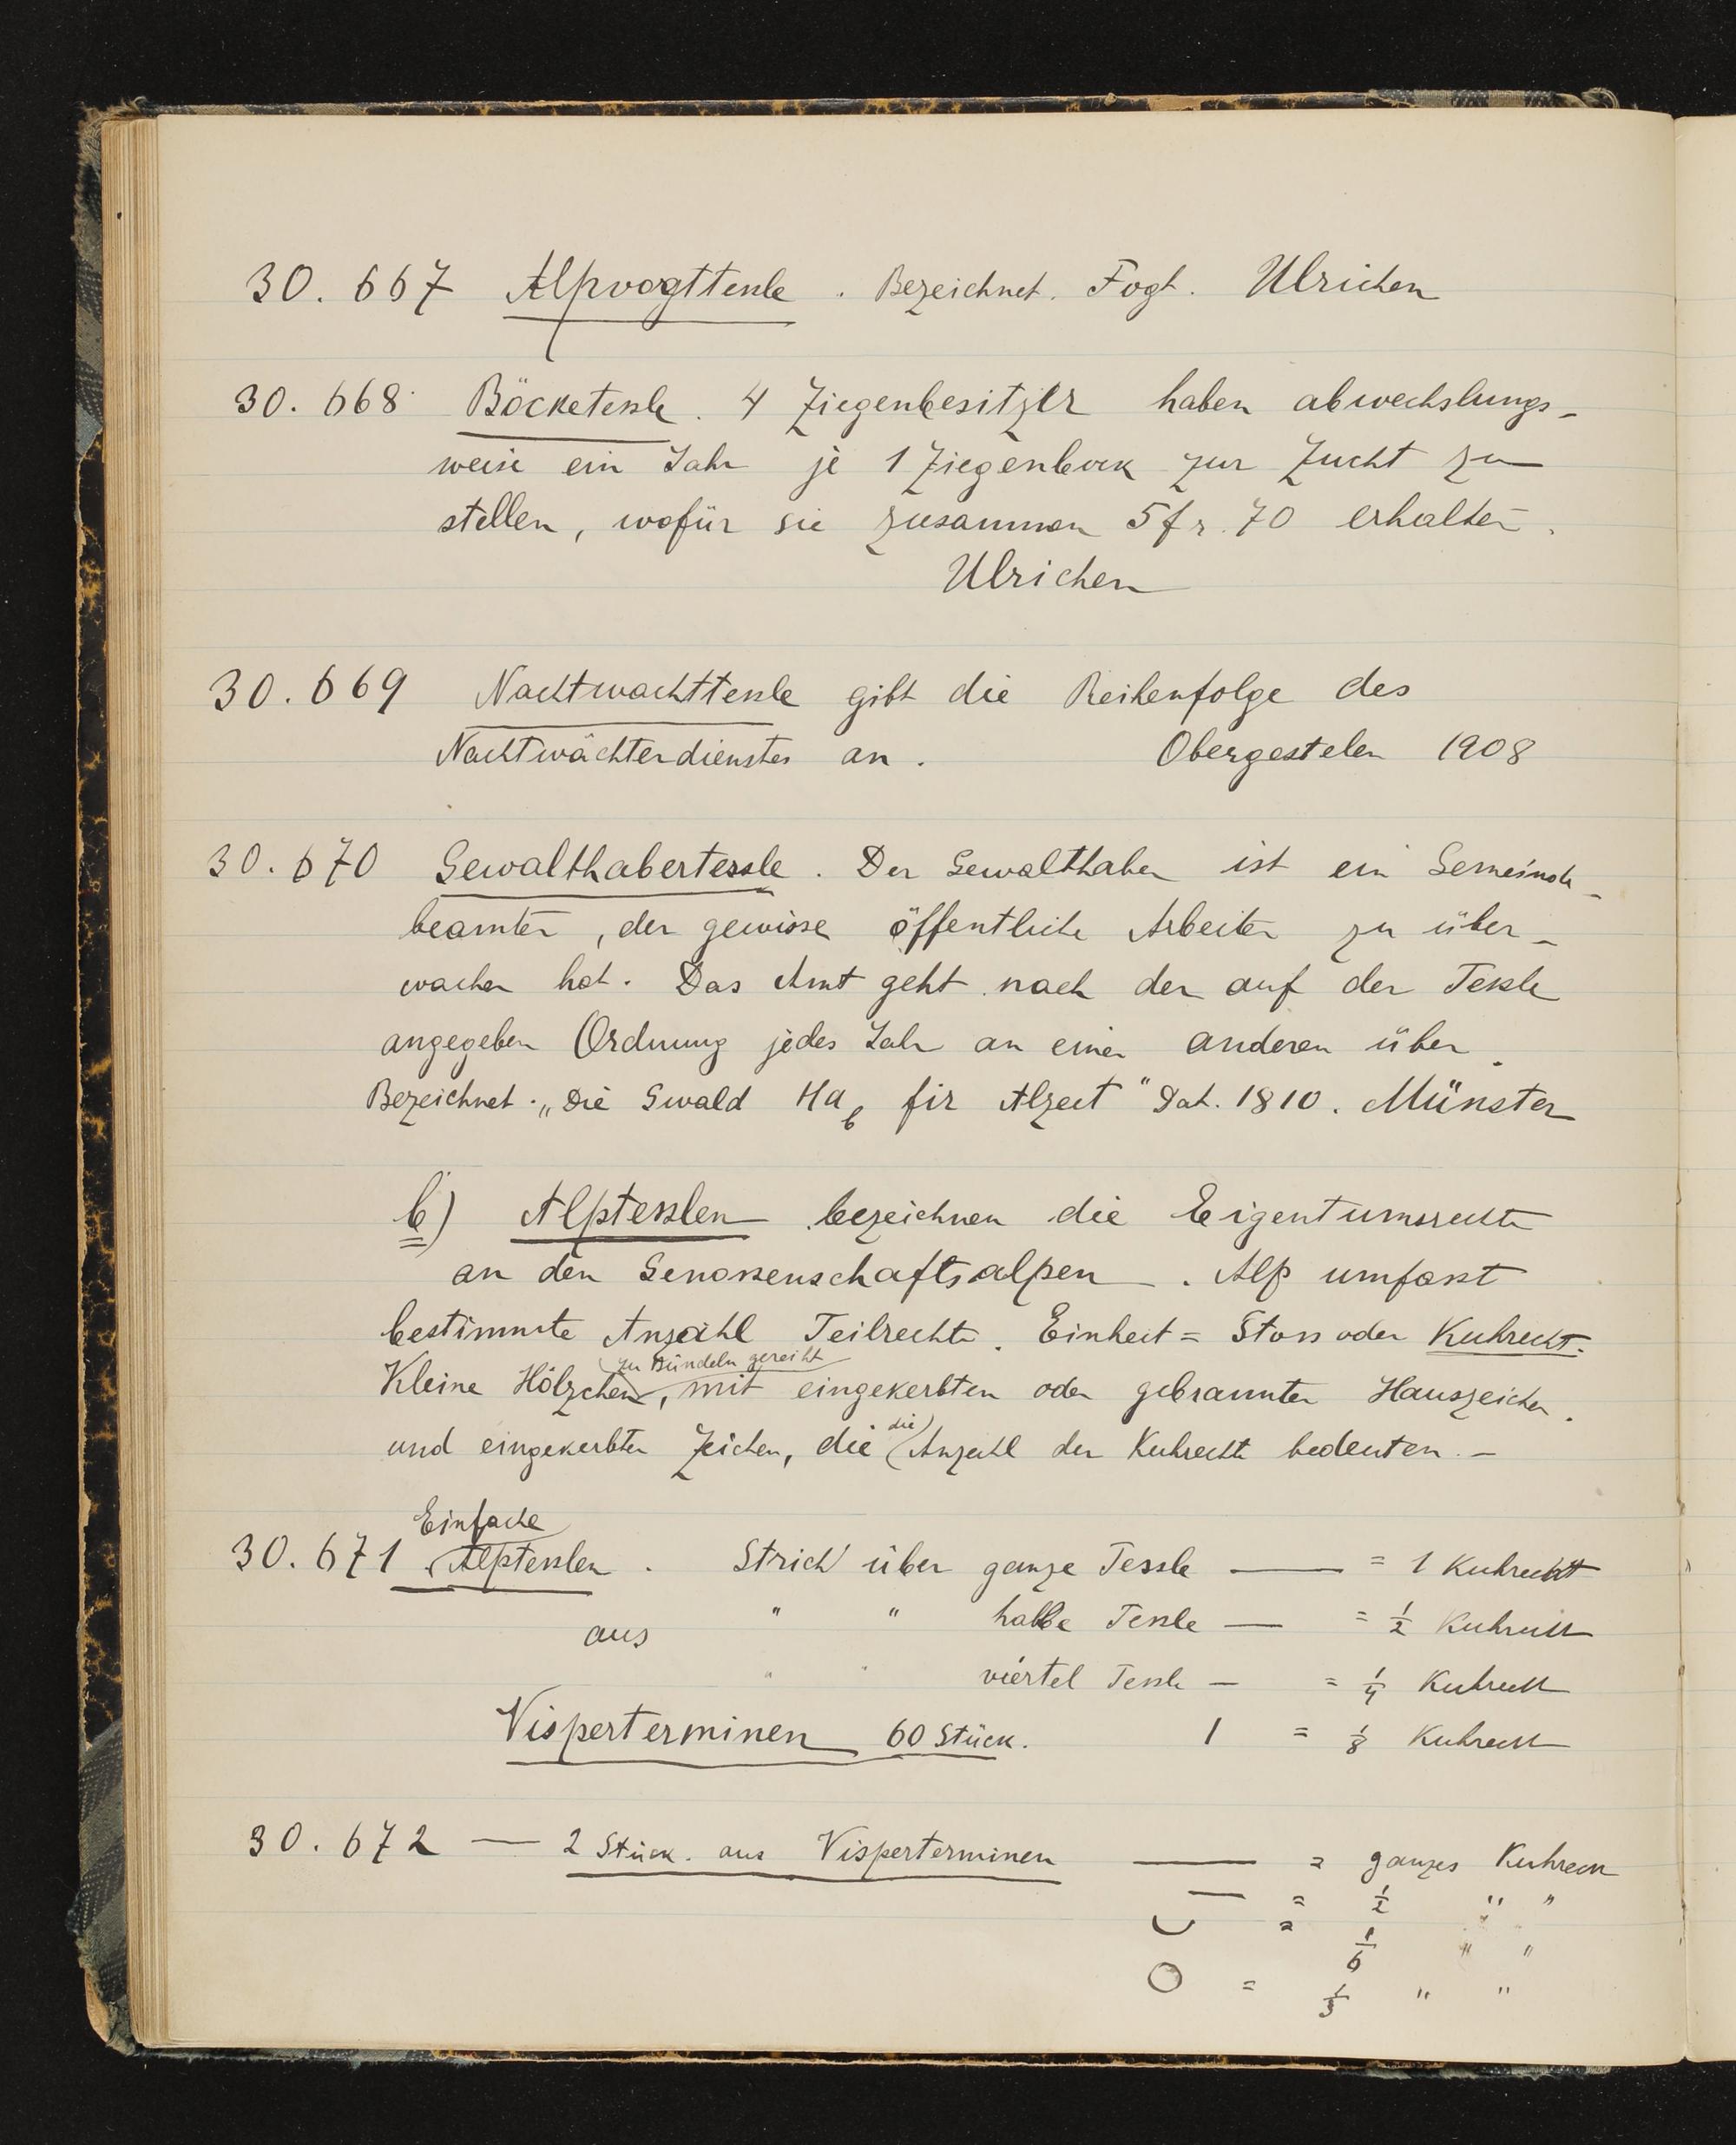 30.667 Alpvogttessle. Bezeichnet. Fogt. Ulrichen
30.668 Böcketessle. 4 Ziegenbesitzer haben abwechslungs-
weise ein Jahr je 1 Ziegenbock zur Zucht zu
stellen, wofür sie zusammen 5 fr. 70 erhalten.
Ulrichen
30.669 Nachtwachttessle gibt die Reihenfolge des
Nachtwächterdienstes an. Obergestelen 1908
30.670 Gewalthabertessle. Der Gewalthaber ist ein Gemeinde-
beamter, der gewisse öffentliche Arbeiten zu über-
wachen hat. Das Amt geht nach der auf der Tessle
angegeben Ordnung jedes Jahr an einen anderen über.
Bezeichnet. „Die Gwald Hab fir Alzeit" Dat. 1810. Münster
b) Alptesslen bezeichnen die Eigentumsrechte
an den Genossenschaftsalpen. Alp umfasst
bestimmte Anzahl Teilrechte. Einheit = Stoss oder Kuhrecht.
zu Bündeln gereiht
Kleine Hölzchen, mit eingekerbten oder gebrannten Hauszeichen.
und eingekerbten Zeichen, die die Anzahl der Kuhrechte bedeuten. –
Einfache
30.671 Alptesslen. Strich über ganze Tessle —— = 1 Kuhrecht
aus " " halbe Tessle — = 1/2 Kuhrecht
" " viertel Tessle – = 1/4 Kuhrecht
Visperterminen 60 Stück. 1 = 1/8 Kuhrecht
30.672 — 2 Stück. aus Visperterminen —— = ganzes Kuhrecht
— = 1/2 " "
◡ = 1/6 " "
○ = 1/3 " "